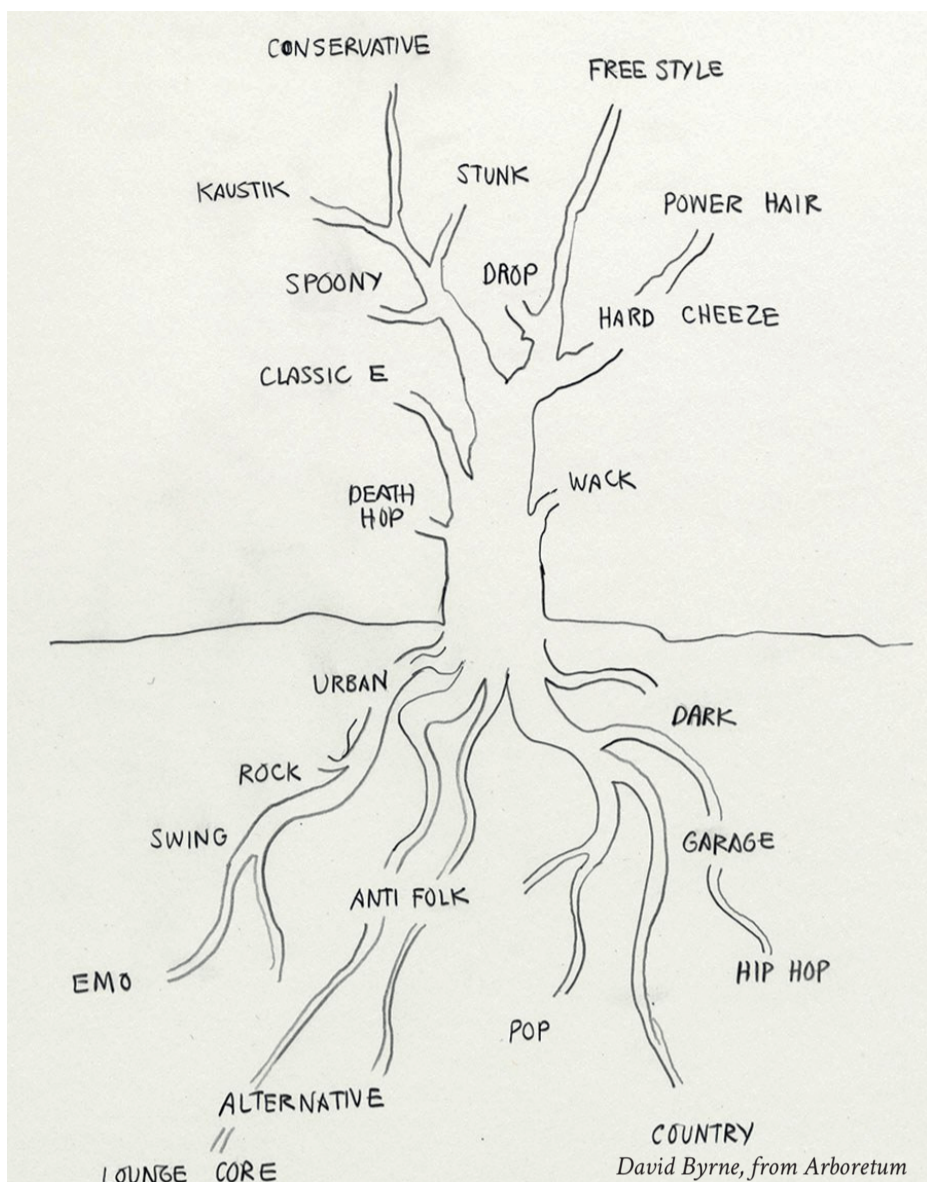 CONSERVATIVE
FREE STYLE
STUNK
KAUSTIK
POWER HAIR
DROP
SPOONY
HARD CHEEZE
CLASSIC E
WACK
DEATH
HOP
URBAN
DARK
ROCK
SWING
GARAGE
ANTI FOLK
EMO
HIP HOP
POP
ALTERNATIVE
COUNTRY
LOUNGE CORE
David Byrne, from Arboretum